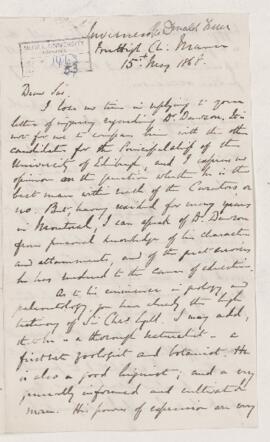 McGILL UNIVERSITY
ARCHIVES
Inverness McDonald
15th May 1868.
Dear Sir,
I lose no time in replying to your
letter of inquiry regarding Dr. Dawson. It is
not for me to compare him with the other
candidates for the Principalship of the
University of Edinburgh, and I express no
opinion on the question whether he is the
best man with each of the Curators or
no. But, having resided for many years
in Montreal, I can speak of Dr. Dawson
from personal knowledge of his character
and attainments, and of the great services
he has rendered to the cause of education.
As to his eminence in geology, and
palaeontology you have already the high
testimony of Sir Chas Lyell. I may add,
that he is a thorough naturalist - a
first rate zoologist and botanist. He
is also a good linguist; and a very
generally informed and cultivated
man. His powers of expression are very